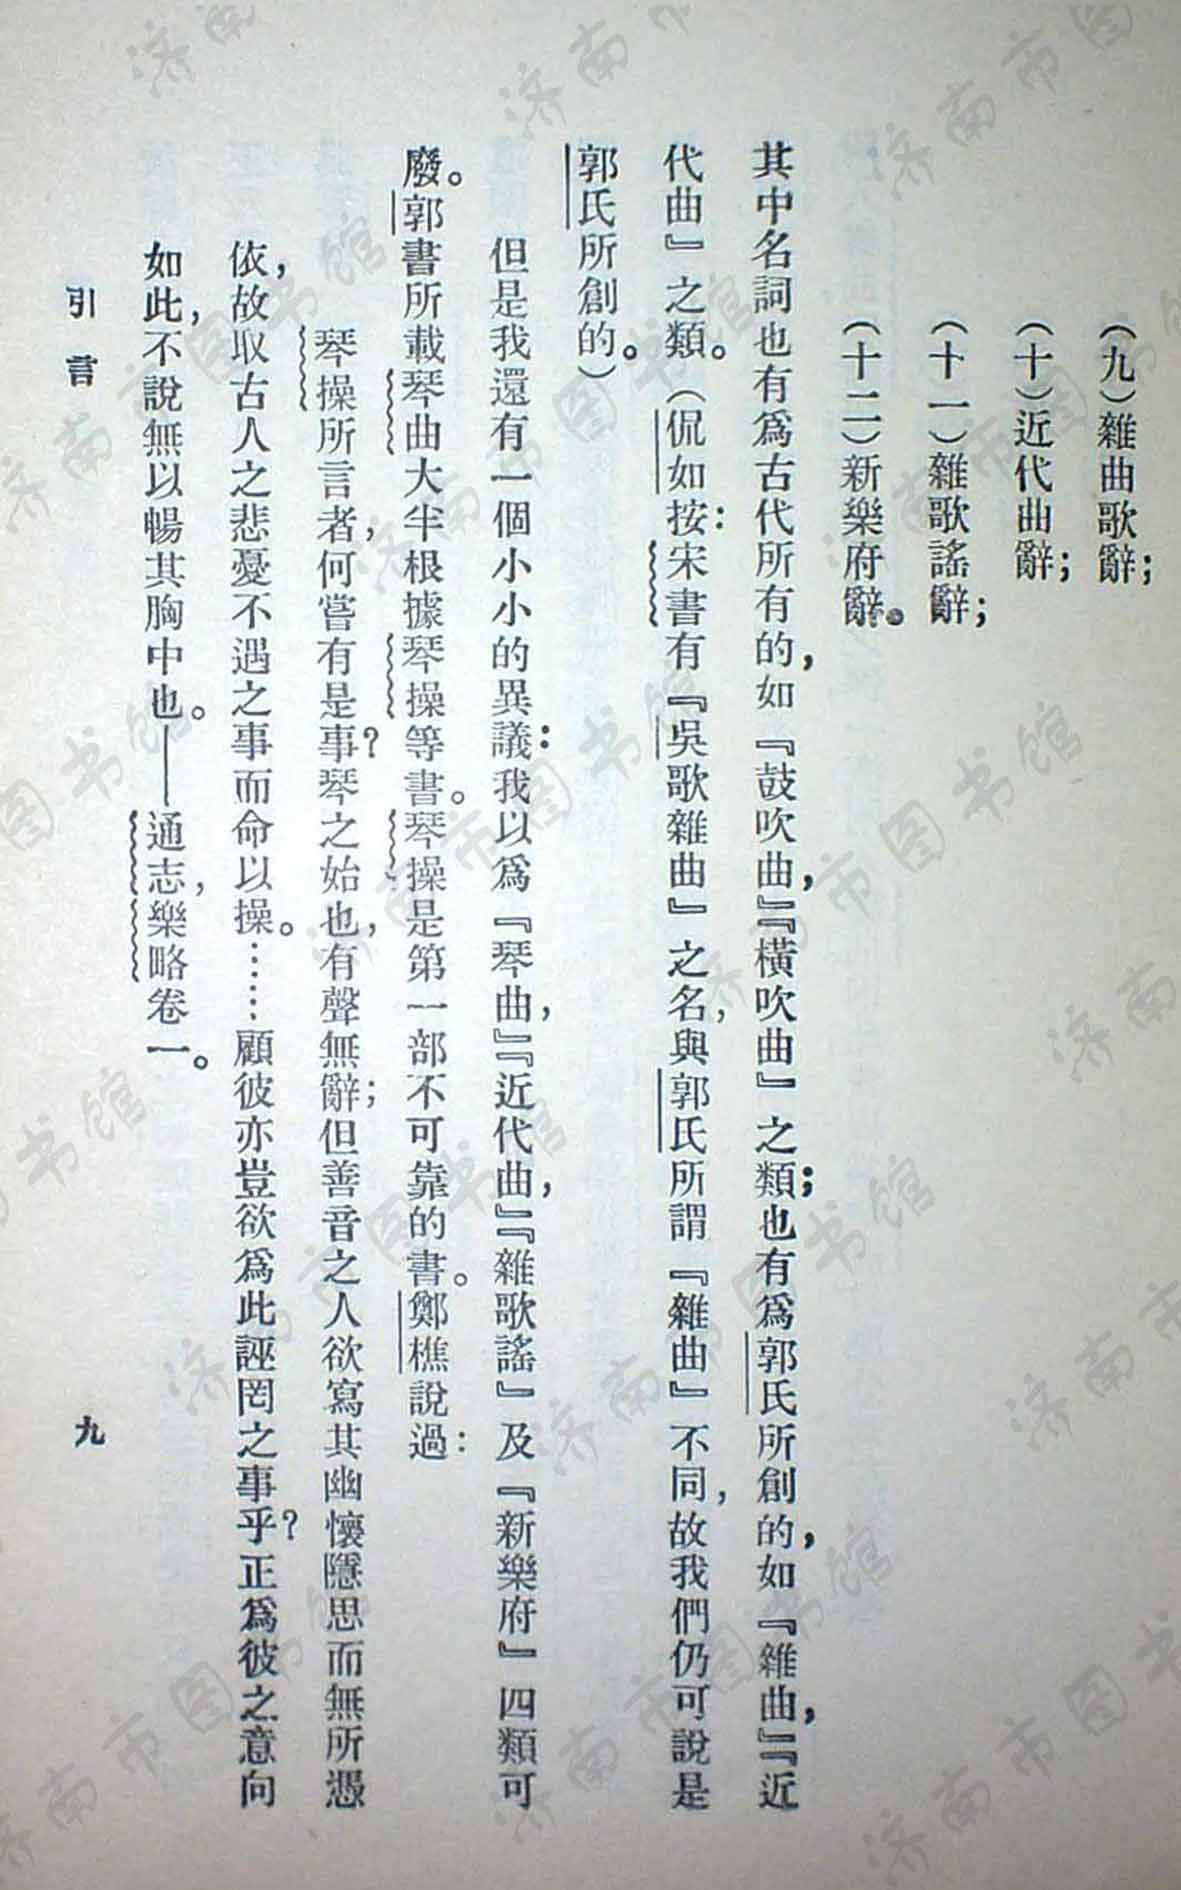 (九)雜曲歌辭；
(十)近代曲辭；
(十一)雜歌謠辭；
(十二)新樂府辭。
其中名詞也有爲古代所有的，如『鼓吹曲，』『橫吹曲』之類；也有爲郭氏所創的，如『雜曲，』『近
代曲』之類。(侃如按：宋書有『吳歌雜曲』之名，與郭氏所謂『雜曲』不同，故我們仍可說是
郭氏所創的。)
但是我還有一個小小的異議：我以爲『琴曲，』『近代曲，』『雜歌謠』及『新樂府』四類可
廢。郭書所載琴曲大半根據琴操等書。琴操是第一部不可靠的書。鄭樵說過：
琴操所言者，何嘗有是事？琴之始也，有聲無辭；但善音之人欲寫其幽懷隱思而無所憑
依，故取古人之悲憂不遇之事而命以操。……顧彼亦豈欲爲此誣罔之事乎？正爲彼之意向
如此，不說無以暢其胸中也。——通志，樂略卷一。
引言
九
济南市图书馆